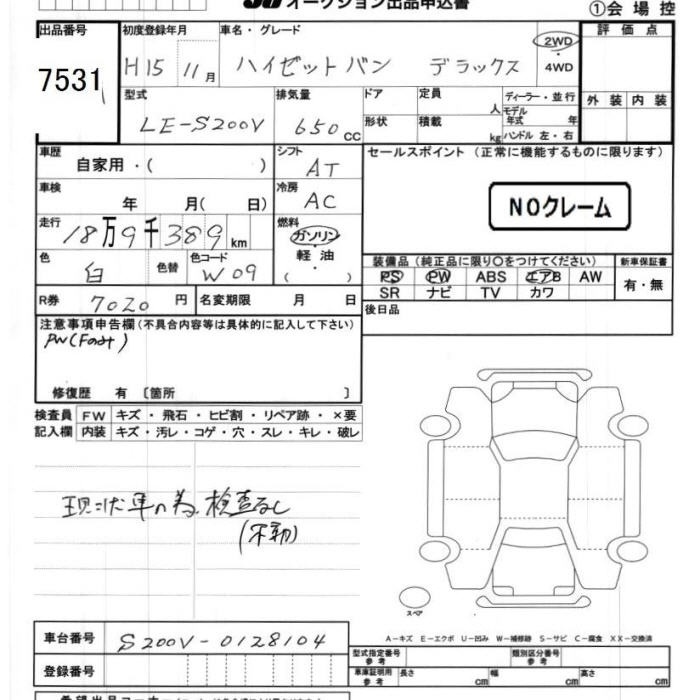 オークション出品申込書 ①会場控
出品番号 初度登録年月 車名・グレード 評価点
7531 H15 11月 ハイゼットバン デラックス 2WD・4WD
型式 排気量 ドア 定員 ディーラー・並行 外装 内装
LE-S200V 650cc 形状 積載 人 kg モデル年式 年 ハンドル 左・右
車歴 シフト セールスポイント (正常に機能するものに限ります)
自家用・( ) AT
車検 冷房
年 月( 日) AC NOクレーム
走行 燃料
18万9千389km ガソリン・軽油・( )
色 色替 色コード 装備品 (純正品に限り○をつけてください) 新車保証書
白 W09 PS PW ABS エアB AW 有・無
SR ナビ TV カワ
R券 7020円 名変期限 月 日 後日品
注意事項申告欄(不具合内容等は具体的に記入して下さい)
修復歴 有 〔箇所 〕
検査員 FW キズ・飛石・ヒビ割・リペア跡・×要
記入欄 内装 キズ・汚レ・コゲ・穴・スレ・キレ・破レ
現状車の為、検査なし
(不動)
スペア
A-キズ E-エクボ U-凹み W-補修跡 S-サビ C-腐食 XX-交換済
車台番号 S200V-0128104 型式指定番号 参考 類別区分番号 参考
登録番号 車庫証明用 参考 長さ cm 幅 cm 高さ cm